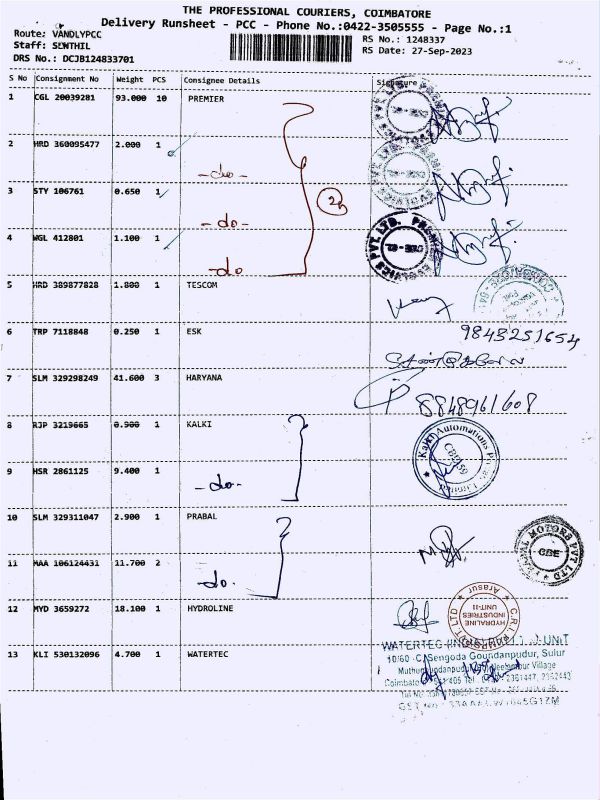 THE PROFESSIONAL COURIERS, COIMBATORE
Delivery Runsheet - PCC - Phone No.:0422-3505555 - Page No.:1
Route: VANDLYPCC
RS No.: 1248337
Staff: SENTHIL
RS Date: 27-Sep-2023
DRS No.: DCJB124833701
S No Consignment No Weight PCS Consignee Details Signature
1 CGL 20039281 93.000 10 PREMIER
2 HRD 360095477 2.000 1 -do-
3 STY 106761 0.650 1 -do-
4 WGL 412801 1.100 1 -do
5 HRD 389877828 1.800 1 TESCOM
6 TRP 7118848 0.250 1 ESK 9843251654
7 SLM 329298249 41.600 3 HARYANA 8848961608
8 RJP 3219665 0.900 1 KALKI
9 HSR 2861125 9.400 1 -do-
10 SLM 329311047 2.900 1 PRABAL
11 MAA 106124431 11.700 2 -do-
12 MYD 3659272 18.100 1 HYDROLINE
13 KLI 530132096 4.700 1 WATERTEC
MOTORS PVT LTD
CBE
Arasur
HYDRALINE
INDUSTRIES
UNIT-II
WATERTEC
10/60 -C, Sengoda Goundanpudur, Sulur
Village